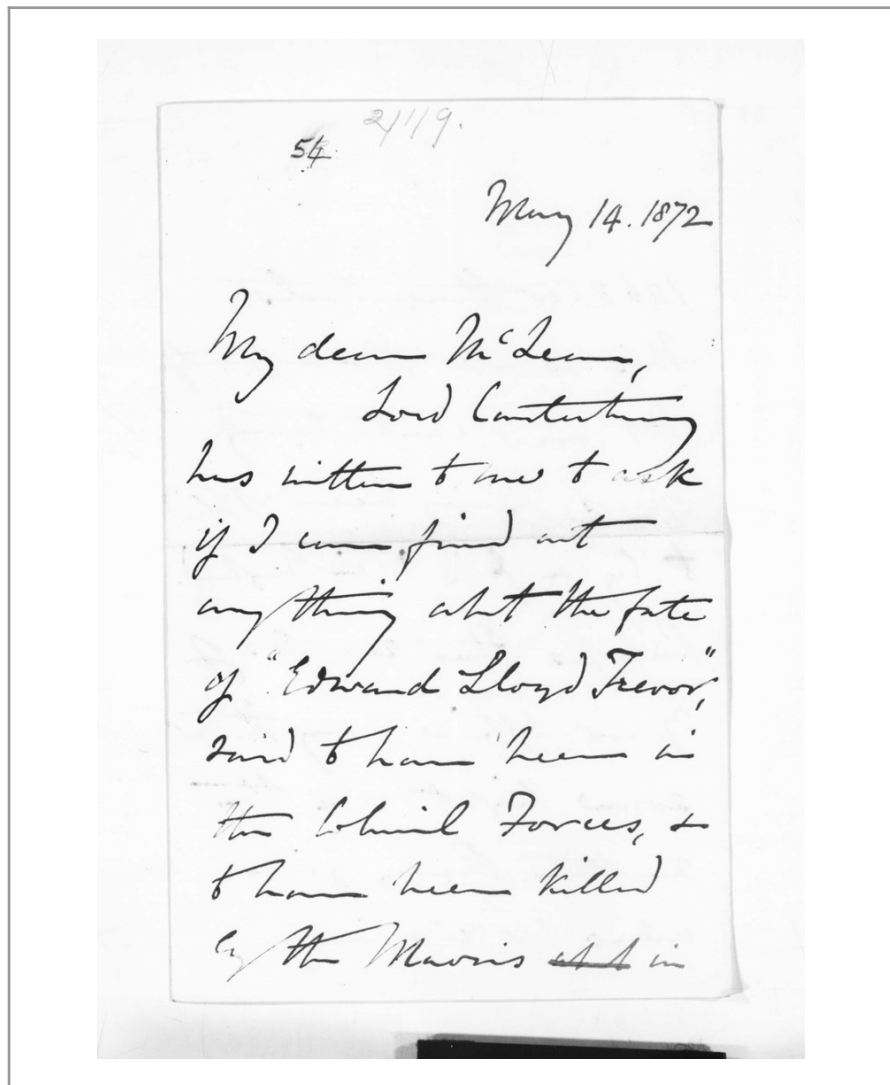 54
May 14. 1872
My dear McLean,
Lord Canterbury
has written to me to ask
if I can find out
anything about the fate
of "Edward Lloyd Trevor",
said to have been in
the Colonial Forces, &
to have been killed
by the Maoris in